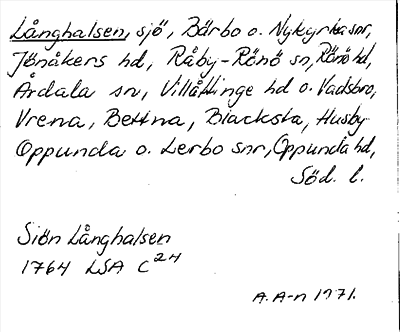 Långhalsen, sjö, Bärbo o. Nykyrka snr,
Jönåkers hd, Råby-Rönö sn, Rönö hd,
Årdala sn, Villåttinge hd o. Vadsbro,
Vrena, Bettna, Blacksta, Husby-
Oppunda o. Lerbo snr, Oppunda hd,
Söd. l.
Siön Långhalsen
1764 LSA C 24
A. A-n 1971.